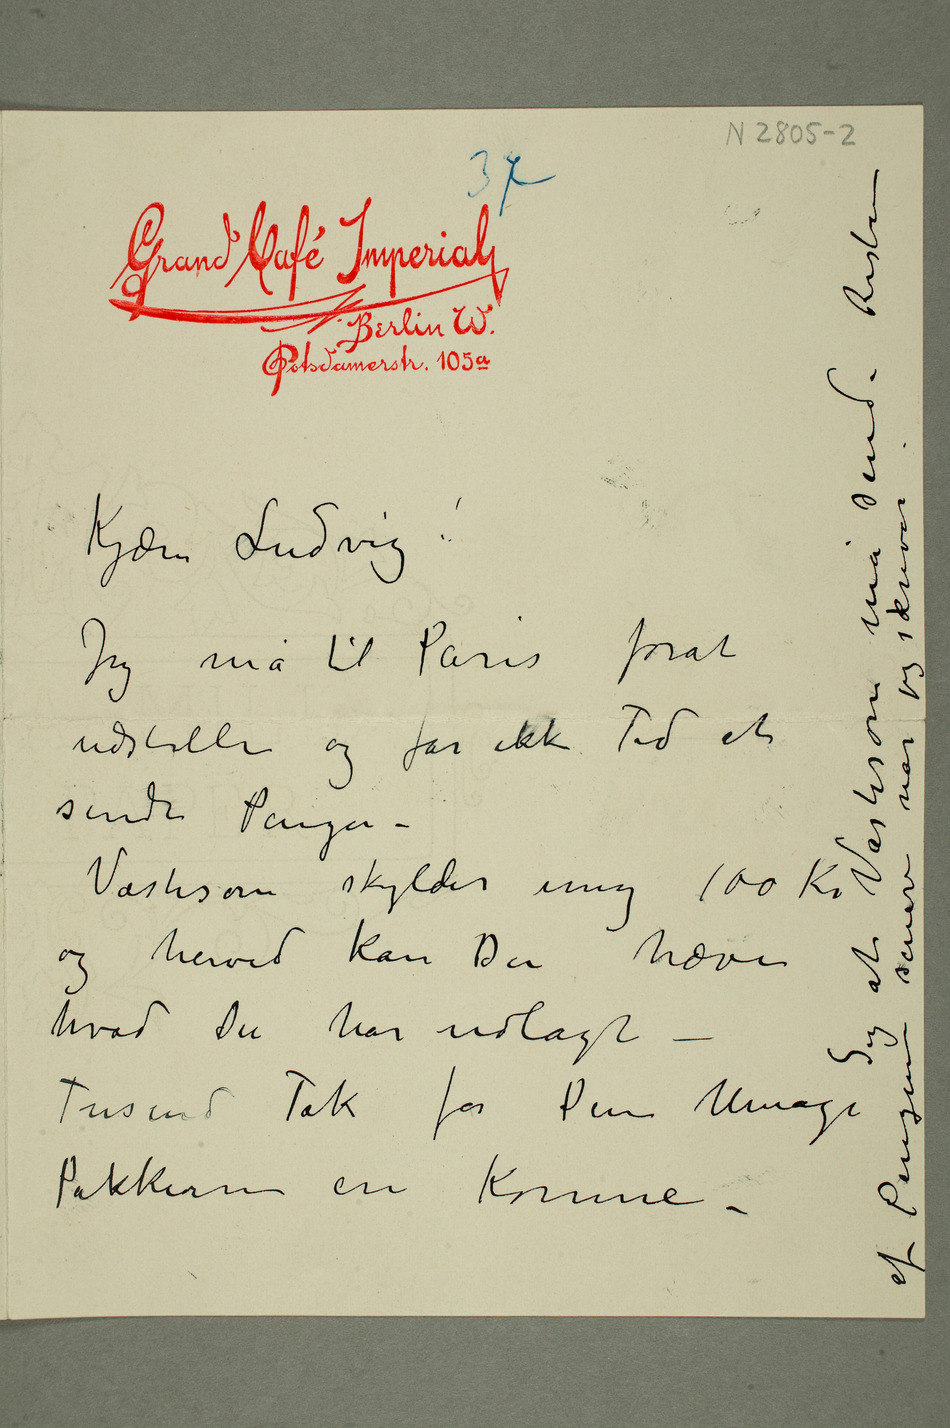 N 2805-2
37
Grand Café Imperial
Berlin W.
Potsdamerstr. 105a
Kjære Ludvig!
Jeg må til Paris forat
udstille og får ikke Tid at
sende Penger –
Væstesom skylder mig 100 Kr
og herved kan Du hæve
hvad Du har udlagt –
Tusend Tak for Din Umage
Pakkerne en Komme –
Sig at Vestesom må sende Resten
af Pengene senere når jeg skriver.